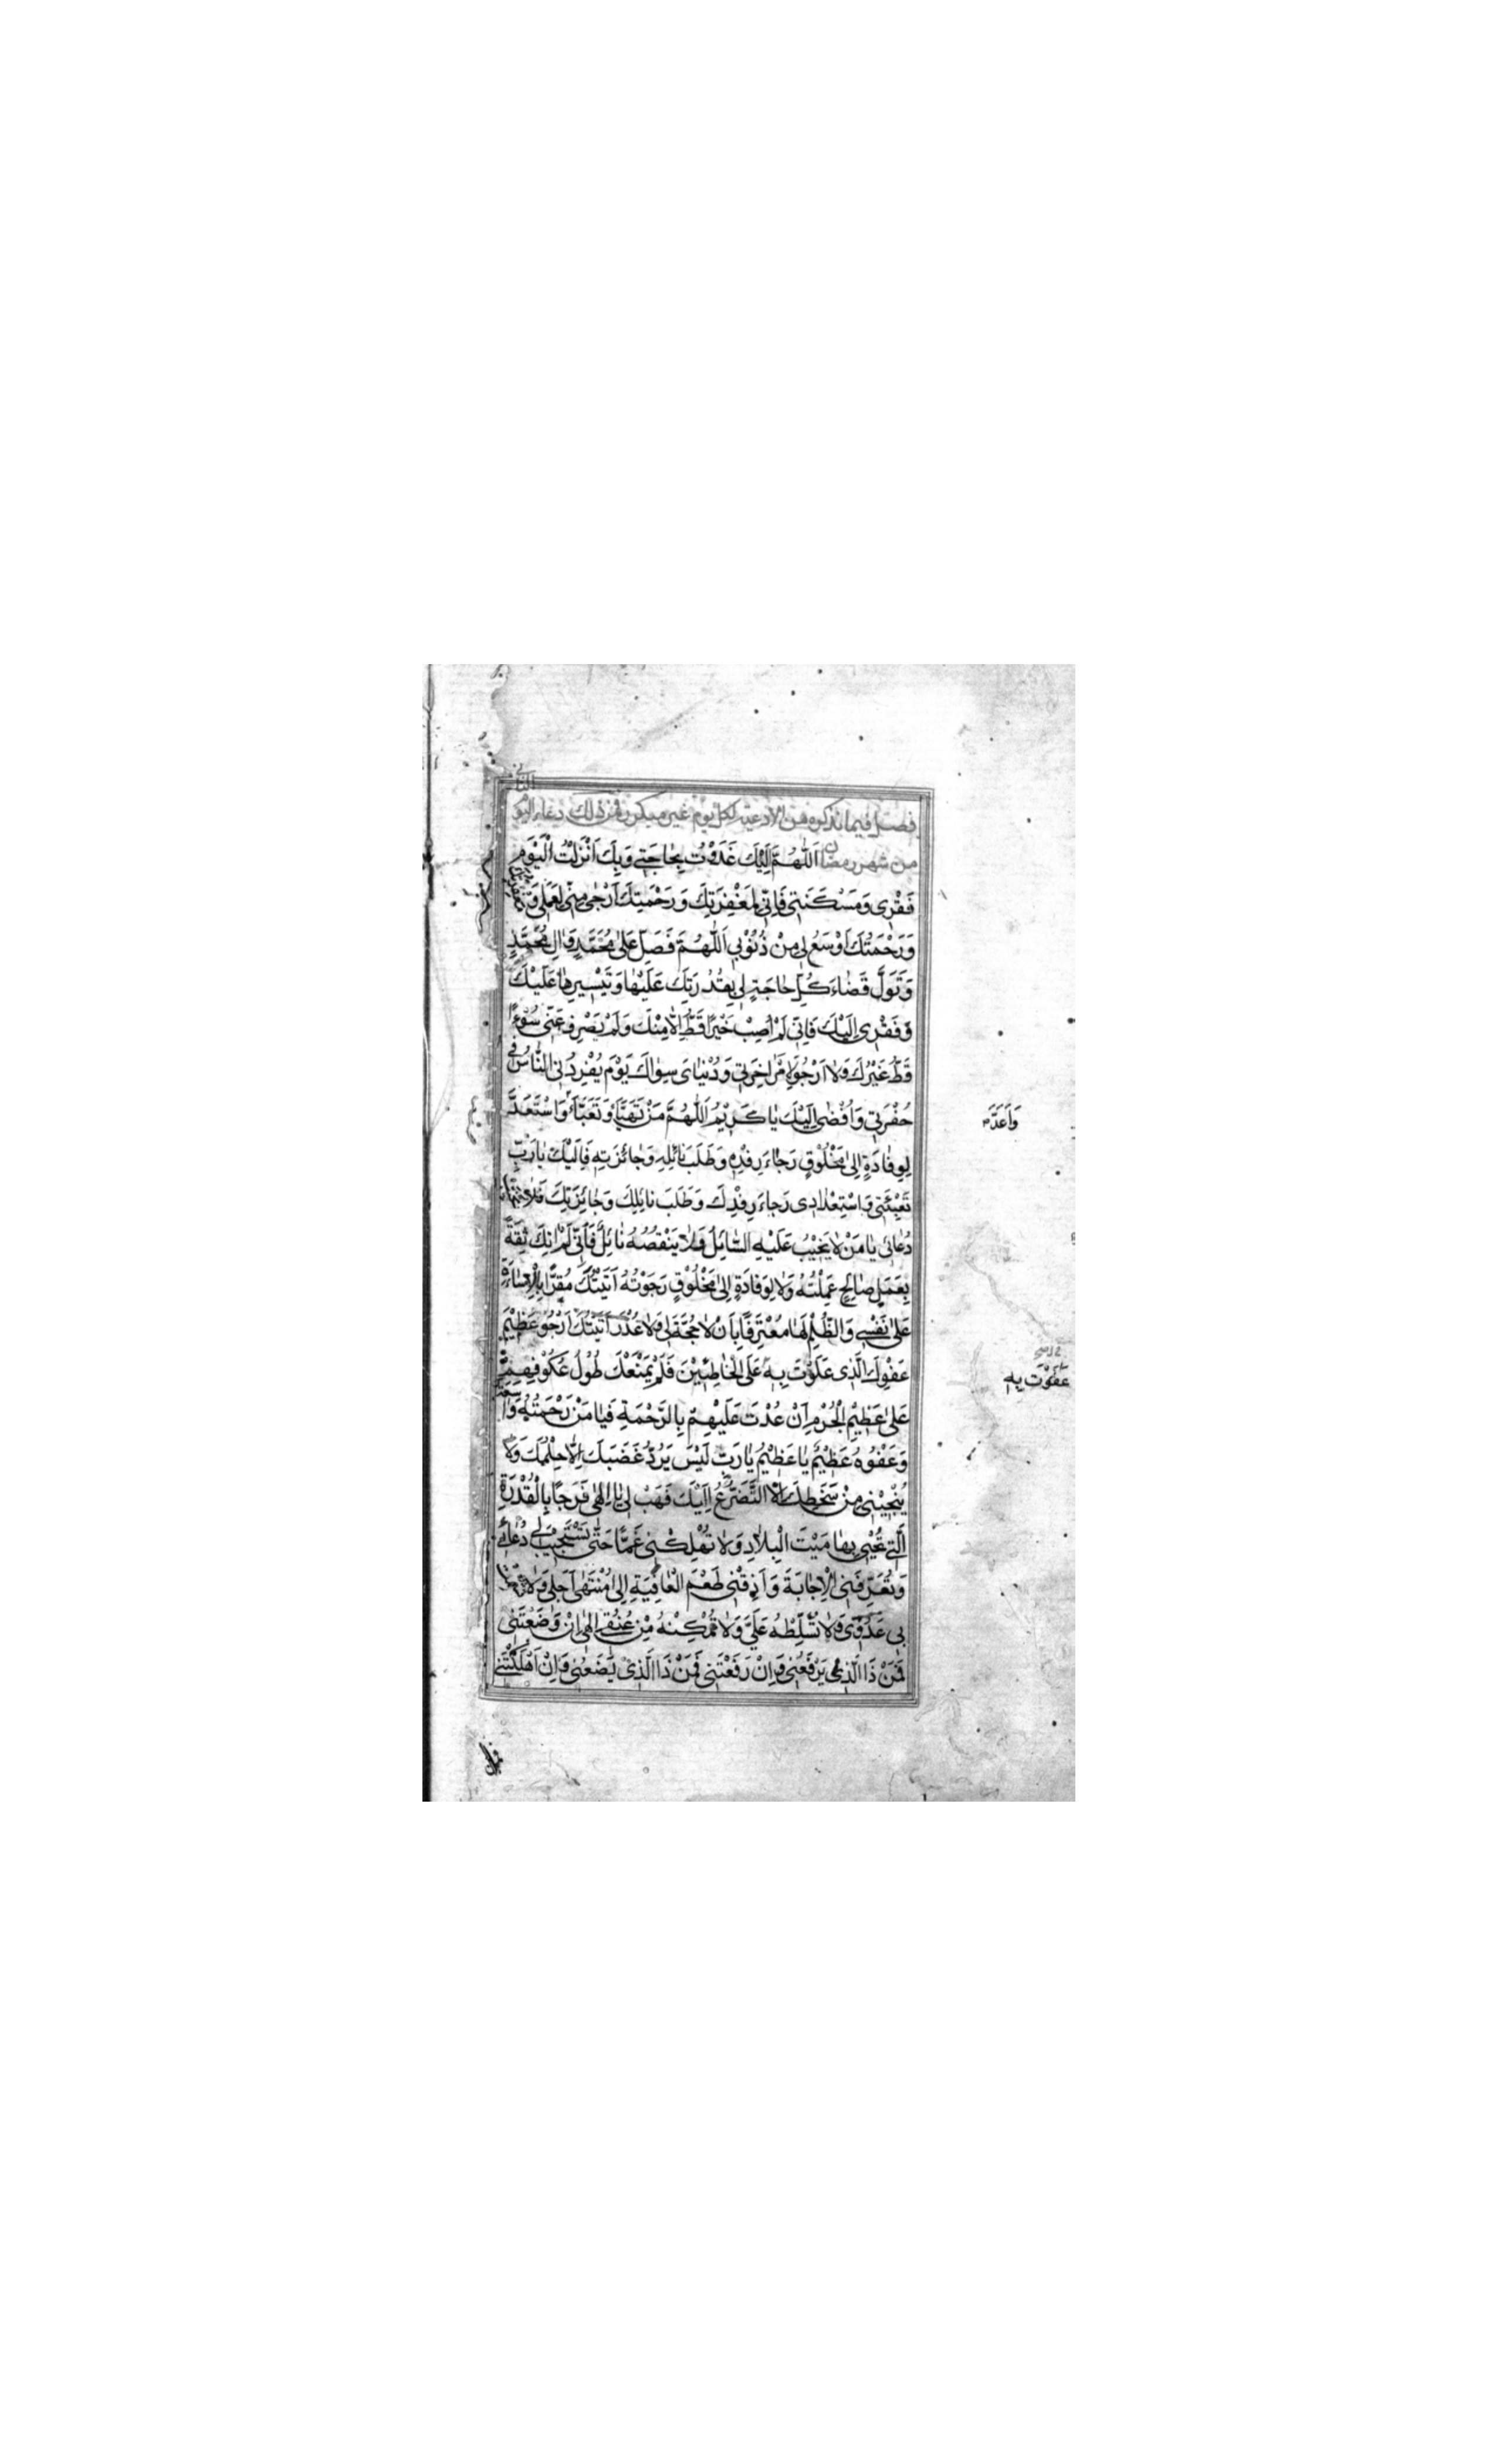 فصل فيما نذكره من الادعية لكل يوم غير متكررة فمن ذلك دعاء اليوم الثاني
من شهر رمضان اَللّٰهُمَّ اِلَيْكَ غَدَوْتُ بِحَاجَتِي وَبِكَ اَنْزَلْتُ الْيَوْمَ
فَقْرِي وَمَسْكَنَتِي فَاِنِّي لِمَغْفِرَتِكَ وَرَحْمَتِكَ اَرْجٰى مِنِّي لِعَمَلِي وَ
وَرَحْمَتُكَ اَوْسَعُ لِي مِنْ ذُنُوْبِي اَللّٰهُمَّ فَصَلِّ عَلٰى مُحَمَّدٍ وَاٰلِ مُحَمَّدٍ
وَتَوَلَّ قَضٰاءَ كُلِّ حٰاجَةٍ لِي بِقُدْرَتِكَ عَلَيْهٰا وَتَيْسِيرِهٰا عَلَيْكَ
وَفَقْرِي اِلَيْكَ فَاِنِّي لَمْ اُصِبْ خَيْرًا قَطُّ اِلّٰا مِنْكَ وَلَمْ يَصْرِفْ عَنِّي سُوْءًا
قَطُّ غَيْرُكَ وَلٰا اَرْجُو لِاَمْرِ اٰخِرَتِي وَدُنْيٰايَ سِوٰاكَ يَوْمَ يُفْرِدُنِي النّٰاسُ فِي
حُفْرَتِي وَاُفْضٰى اِلَيْكَ يٰا كَرِيْمُ اَللّٰهُمَّ مَنْ تَهَيَّأَ وَتَعَبَّأَ وَاسْتَعَدَّ
وَاَعَدَّ
لِوِفٰادَةٍ اِلٰى مَخْلُوْقٍ رَجٰاءَ رِفْدِهِ وَطَلَبَ نٰائِلِهِ وَجٰائِزَتِهِ فَاِلَيْكَ يٰا رَبِّ
تَعْبِئَتِي وَاسْتِعْدٰادِي رَجٰاءَ رِفْدِكَ وَطَلَبَ نٰائِلِكَ وَجٰائِزَتِكَ فَلٰا
دُعٰائِي يٰا مَنْ لٰا يَخِيْبُ عَلَيْهِ السّٰائِلُ وَلٰا يَنْقُصُهُ نٰائِلٌ فَاِنِّي لَمْ اٰتِكَ ثِقَةً
بِعَمَلٍ صٰالِحٍ عَمِلْتُهُ وَلٰا لِوِفٰادَةٍ اِلٰى مَخْلُوْقٍ رَجَوْتُهُ اَتَيْتُكَ مُقِرًّا بِالْاِسٰاءَةِ
عَلٰى نَفْسِي وَالظُّلْمِ لَهٰا مُعْتَرِفًا بِاَنْ لٰا حُجَّةَ لِي وَلٰا عُذْرَ اَتَيْتُكَ اَرْجُو عَظِيْمَ
عَفْوِكَ الَّذِي عَلَوْتَ بِهِ عَلَى الْخٰاطِئِيْنَ فَلَمْ يَمْنَعْكَ طُوْلُ عُكُوْفِهِمْ
عَفَوْتَ بِهِ
عَلٰى عَظِيْمِ الْجُرْمِ اَنْ عُدْتَ عَلَيْهِمْ بِالرَّحْمَةِ فَيٰا مَنْ رَحْمَتُهُ وٰاسِعَةٌ
وَعَفْوُهُ عَظِيْمٌ يٰا عَظِيْمُ يٰا رَبِّ لَيْسَ يَرُدُّ غَضَبَكَ اِلّٰا حِلْمُكَ وَلٰا
يُنْجِيْنِي مِنْ سَخَطِكَ اِلَّا التَّضَرُّعُ اِلَيْكَ فَهَبْ لِي يٰا اِلٰهِي فَرَجًا بِالْقُدْرَةِ
الَّتِي تُحْيِي بِهٰا مَيْتَ الْبِلٰادِ وَلٰا تُهْلِكْنِي غَمًّا حَتّٰى تَسْتَجِيْبَ لِي دُعٰائِي
وَتُعَرِّفَنِي الْاِجٰابَةَ وَاَذِقْنِي طَعْمَ الْعٰافِيَةِ اِلٰى مُنْتَهٰى اَجَلِي وَلٰا تُشْمِتْ
بِي عَدُوِّي وَلٰا تُسَلِّطْهُ عَلَيَّ وَلٰا تُمَكِّنْهُ مِنْ عُنُقِي اِلٰهِي اِنْ وَضَعْتَنِي
فَمَنْ ذَا الَّذِي يَرْفَعُنِي وَاِنْ رَفَعْتَنِي فَمَنْ ذَا الَّذِي يَضَعُنِي وَاِنْ اَهْلَكْتَنِي